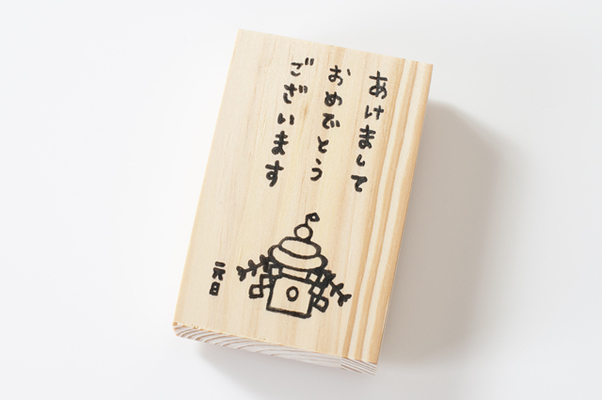 あけまして
おめでとう
ございます
元日